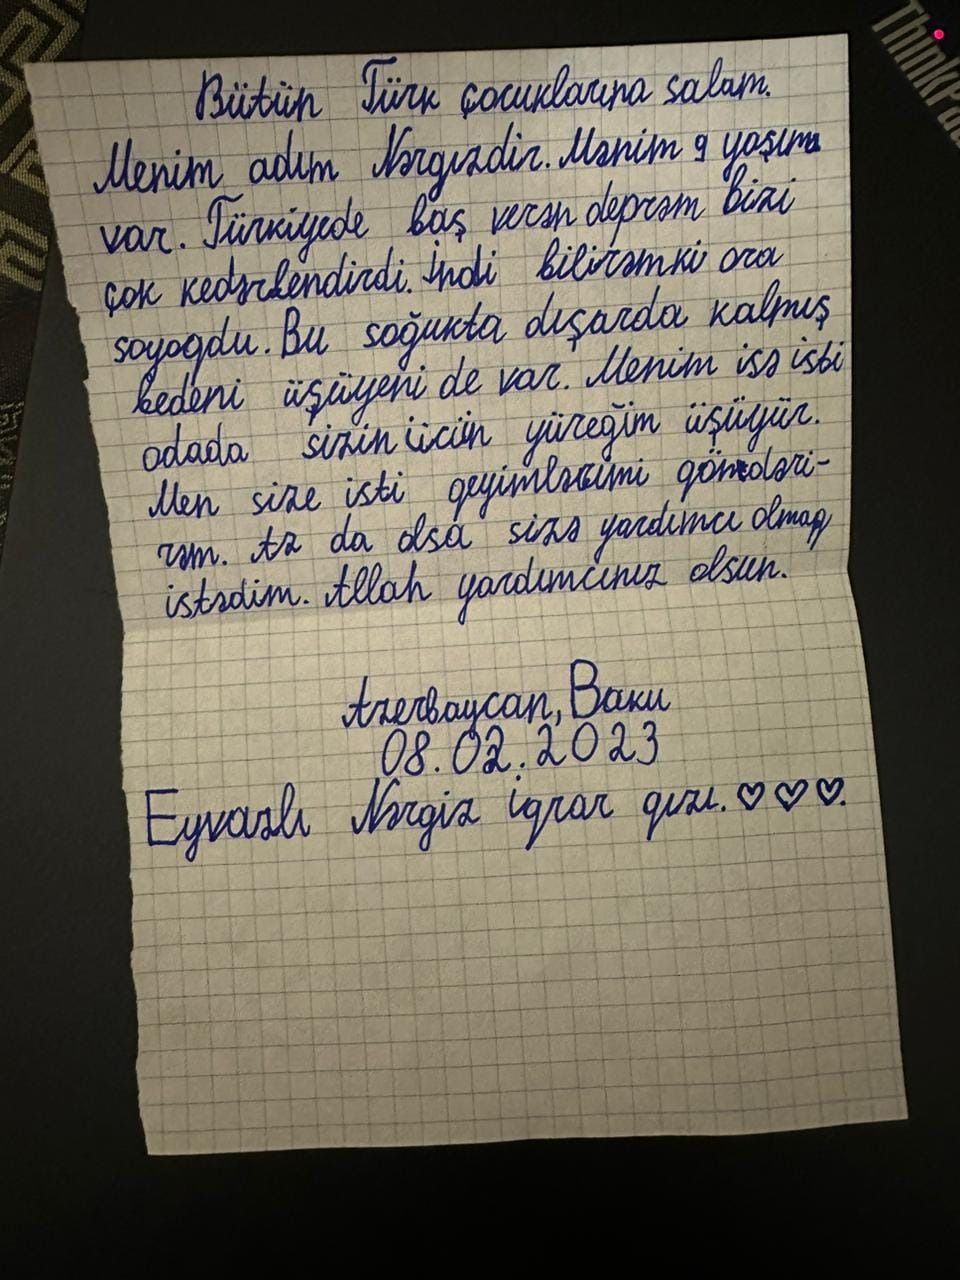 Bütün Türk çocuklarına salam.
Menim adım Nərgızdir. Mənim 9 yaşıma
var. Türkiyede baş verən deprəm bizi
çok kedərlendirdi. İndi bilirəmki ora
soyogdu. Bu soğukta dışarda kalmış
bedeni üşüyeni de var. Menim isə isti
odada sizin üçün yüreğim üşüyür.
Men size isti geyimlərimi göndəri-
rəm. Az da olsa sizə yardımcı olmaq
istədim. Allah yardımcınız olsun.
Azerbaycan, Baku
08.02.2023
Eyvazlı Nərgiz İqrar qızı. ♡♡♡.
ThinkPad